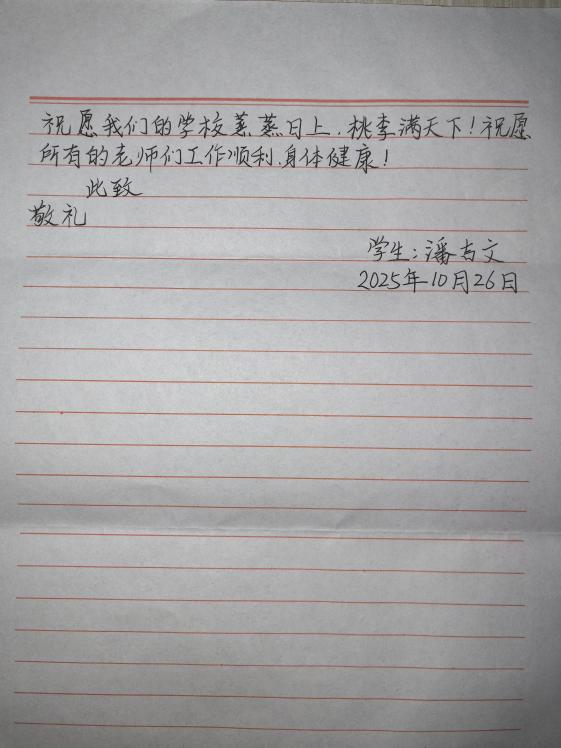 祝愿我们的学校蒸蒸日上，桃李满天下！祝愿
所有的老师们工作顺利，身体健康！
此致
敬礼
学生：潘古文
2025年10月26日